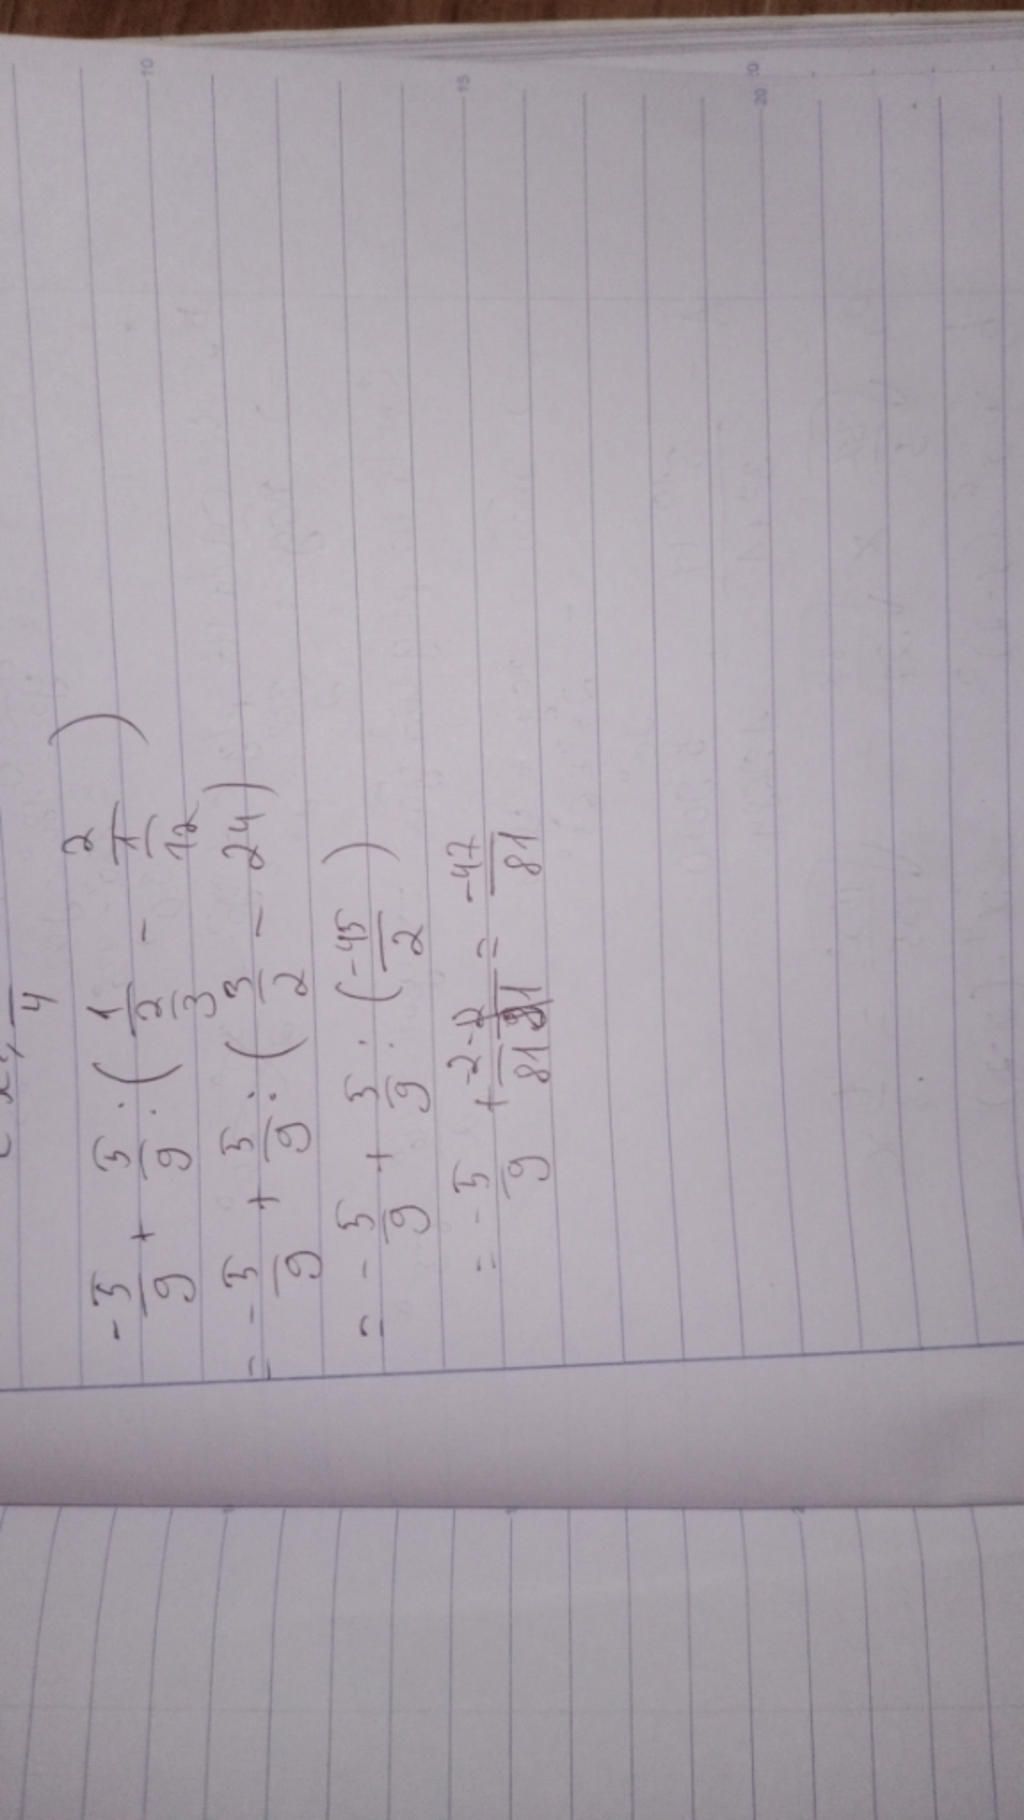 4
-5/9 + 5/9 : (1/2/3 - 2/1/12)
= -5/9 + 5/9 : (3/2 - 24)
= -5/9 + 5/9 : (-45/2)
= -5/9 + -2/81 = -47/81